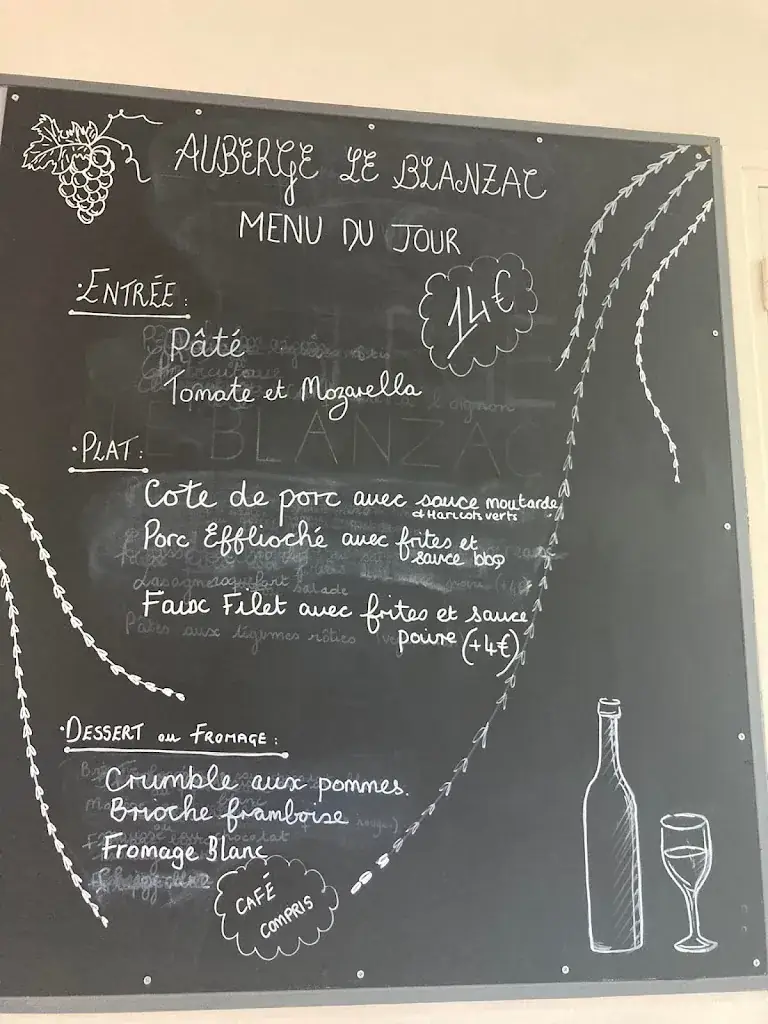 AUBERGE LE BLANZAC
MENU DU JOUR
14€
·ENTRÉE:
Pâté
Tomate et Mozarella
LE BLANZAC
·PLAT:
Cote de porc avec sauce moutarde
et Haricots verts
Porc Efflioché avec frites et
sauce bbq
Faux Filet avec frites et sauce
poivre (+4€)
Pâtes aux légumes rôtis
·DESSERT ou FROMAGE:
Crumble aux pommes.
Brioche framboise
Fromage Blanc
CAFÉ
COMPRIS